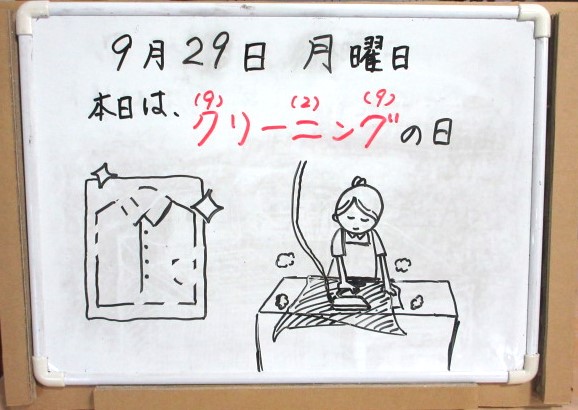 9月29日 月曜日
(9) (2) (9)
本日は、クリーニングの日